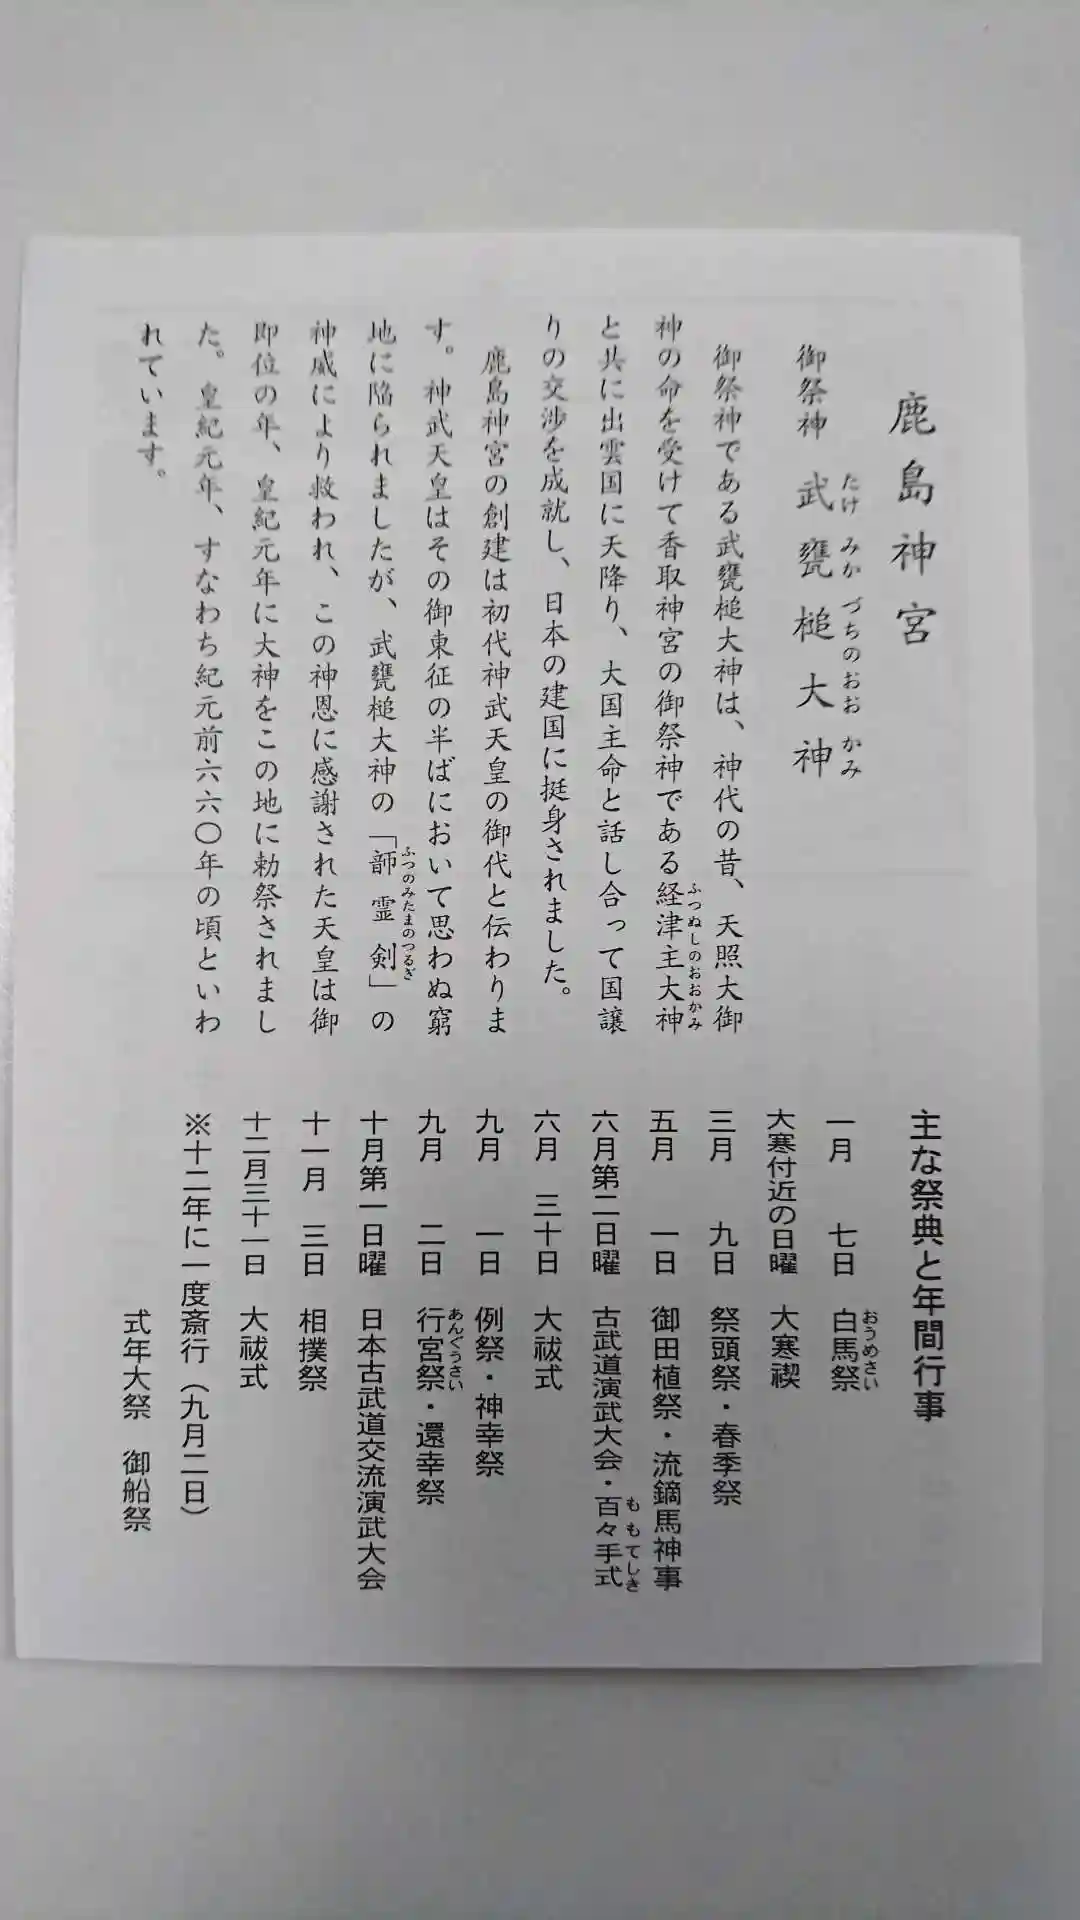 鹿島神宮
御祭神 武甕槌大神
たけ みか づちのおお かみ
御祭神である武甕槌大神は、神代の昔、天照大御
神の命を受けて香取神宮の御祭神である経津主大神
ふつぬしのおおかみ
と共に出雲国に天降り、大国主命と話し合って国譲
りの交渉を成就し、日本の建国に挺身されました。
鹿島神宮の創建は初代神武天皇の御代と伝わりま
す。神武天皇はその御東征の半ばにおいて思わぬ窮
地に陥られましたが、武甕槌大神の「韴霊剣」の
ふつのみたまのつるぎ
神威により救われ、この神恩に感謝された天皇は御
即位の年、皇紀元年に大神をこの地に勅祭されまし
た。皇紀元年、すなわち紀元前六六〇年の頃といわ
れています。
主な祭典と年間行事
一月 七日 白馬祭
おうめさい
大寒付近の日曜 大寒禊
三月 九日 祭頭祭・春季祭
五月 一日 御田植祭・流鏑馬神事
六月第二日曜 古武道演武大会・百々手式
ももてしき
六月 三十日 大祓式
九月 一日 例祭・神幸祭
九月 二日 行宮祭・還幸祭
あんぐうさい
十月第一日曜 日本古武道交流演武大会
十一月 三日 相撲祭
十二月三十一日 大祓式
※十二年に一度斎行（九月二日）
式年大祭 御船祭